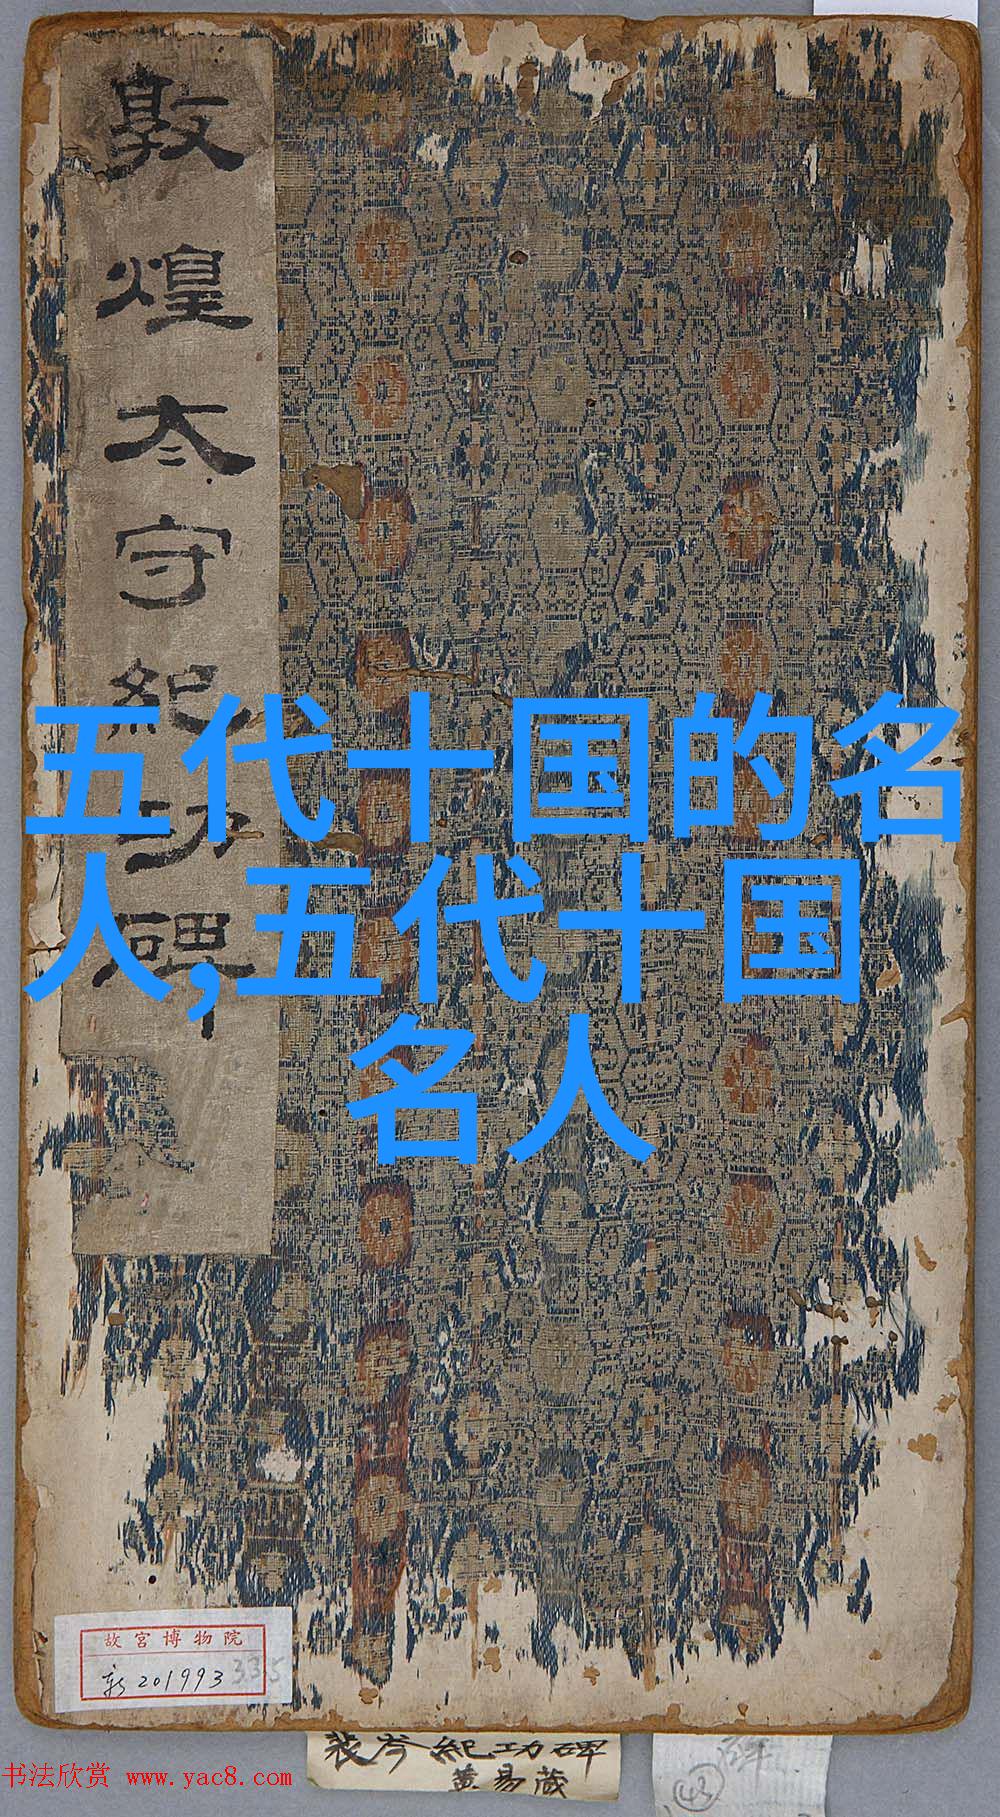 敦煌太守紀功碑
五代十国的名
人,五代十国
名人
故宫博物院
新201993
335
裴岑紀功碑
黄易藏
43
书法欣赏 www.yac8.com